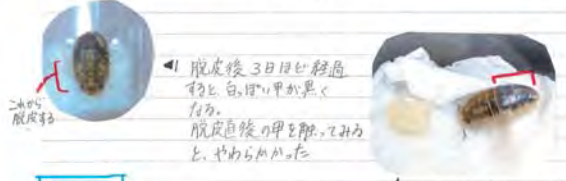 これから
脱皮する
◀ 脱皮後3日ほど経過
すると、白っぽい甲が黒く
なる。
脱皮直後の甲を触ってみる
と、やわらかかった